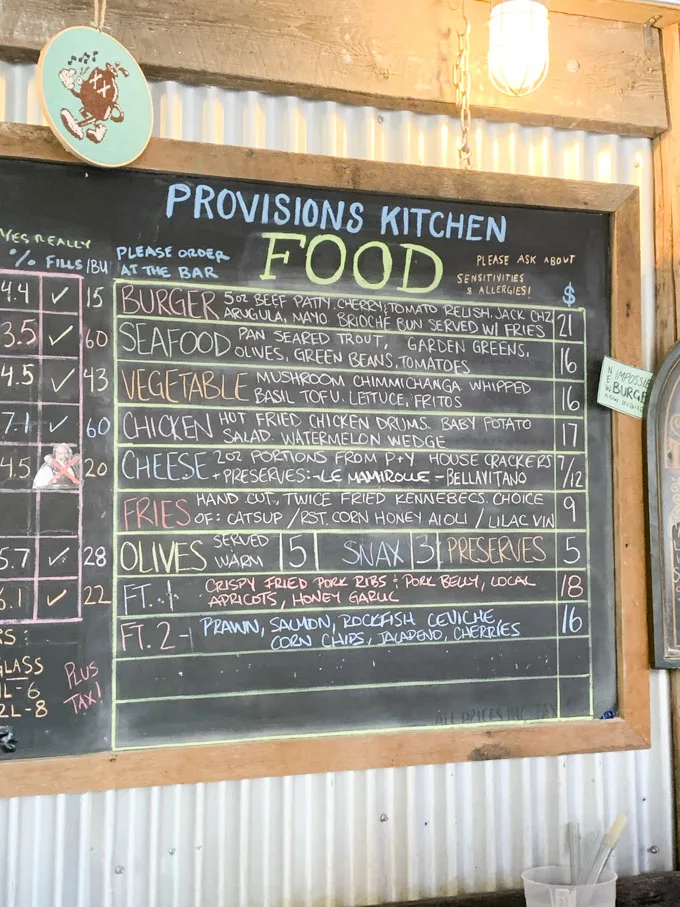 PROVISIONS KITCHEN
FOOD
YES REALLY
% FILLS IBU
PLEASE ORDER
AT THE BAR
PLEASE ASK ABOUT
SENSITIVITIES
& ALLERGIES!
$
4.4 ✓ 15
3.5 ✓ 60
4.5 ✓ 43
7.1 ✓ 60
4.5 20
5.7 ✓ 28
6.1 ✓ 22
BURGER 5oz BEEF PATTY, CHERRY, TOMATO RELISH, JACK CHZ
ARUGULA, MAYO BRIOCHE BUN SERVED W/ FRIES 21
SEAFOOD PAN SEARED TROUT, GARDEN GREENS,
OLIVES, GREEN BEANS, TOMATOES 16
VEGETABLE MUSHROOM CHIMMICHANGA WHIPPED
BASIL TOFU. LETTUCE, FRITOS 16
CHICKEN HOT FRIED CHICKEN DRUMS. BABY POTATO
SALAD. WATERMELON WEDGE 17
CHEESE 2oz PORTIONS FROM P+Y HOUSE CRACKERS
+ PRESERVES: -LE MAMIROLLE - BELLAVITANO 7/12
FRIES HAND CUT, TWICE FRIED KENNEBECS. CHOICE
OF: CATSUP / RST. CORN HONEY AIOLI / LILAC VIN 9
OLIVES SERVED
WARM 5 SNAX 3 PRESERVES 5
FT. 1 CRISPY FRIED PORK RIBS & PORK BELLY, LOCAL
APRICOTS, HONEY GARLIC 18
FT. 2 - PRAWN, SALMON, ROCKFISH CEVICHE
CORN CHIPS, JALAPENO, CHERRIES 16
GLASS
1L-6
2L-8
PLUS
TAX!
NEW
IMPOSSIB
BURGE